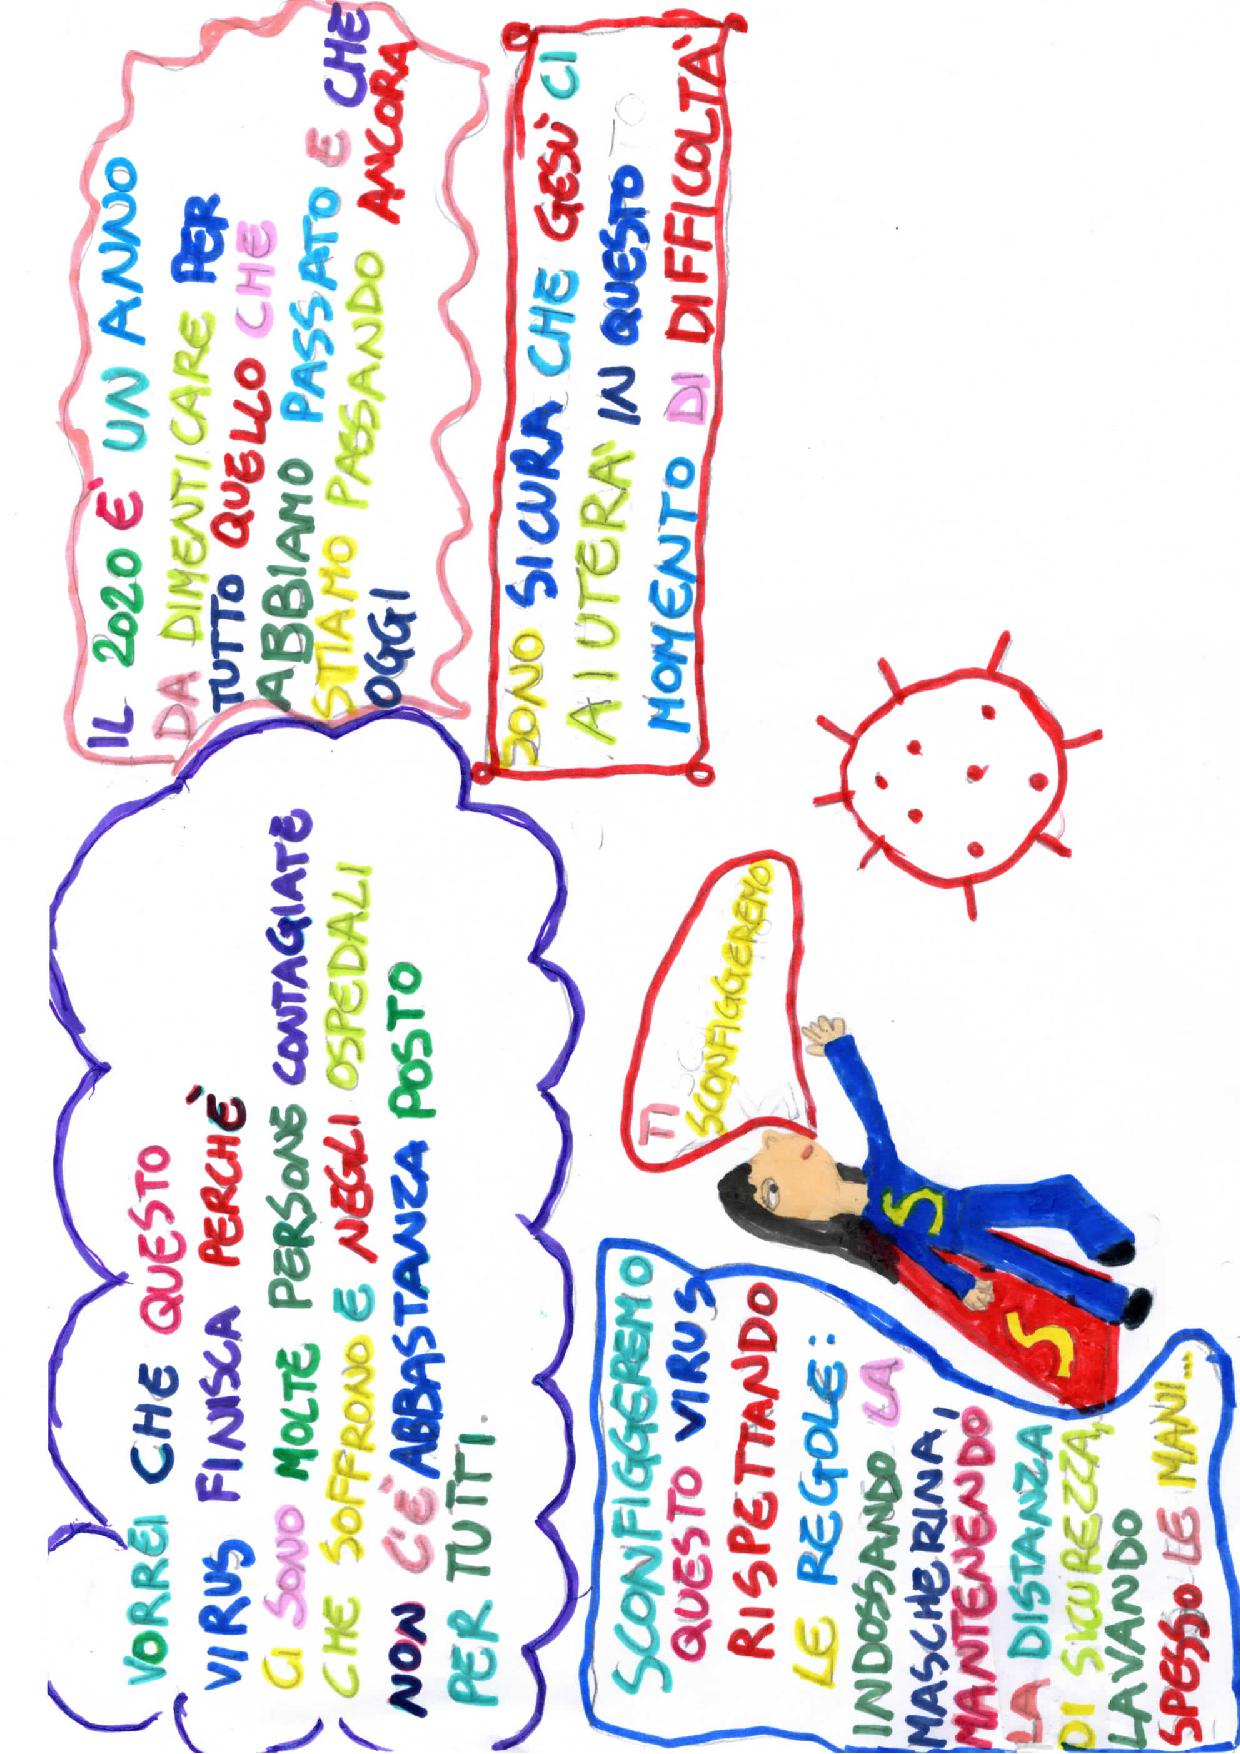 VORREI CHE QUESTO
VIRUS FINISCA PERCHÈ
CI SONO MOLTE PERSONE CONTAGIATE
CHE SOFFRONO E NEGLI OSPEDALI
NON C'È ABBASTANZA POSTO
PER TUTTI.
IL 2020 È UN ANNO
DA DIMENTICARE PER
TUTTO QUELLO CHE
ABBIAMO PASSATO E CHE
STIAMO PASSANDO ANCORA
OGGI
SONO SICURA CHE GESÙ CI
AIUTERÀ IN QUESTO
MOMENTO DI DIFFICOLTÀ
SCONFIGGEREMO
QUESTO VIRUS
RISPETTANDO
LE REGOLE:
INDOSSANDO LA
MASCHERINA,
MANTENENDO
LA DISTANZA
DI SICUREZZA,
LAVANDO
SPESSO LE MANI...
TI
SCONFIGGEREMO
S
S